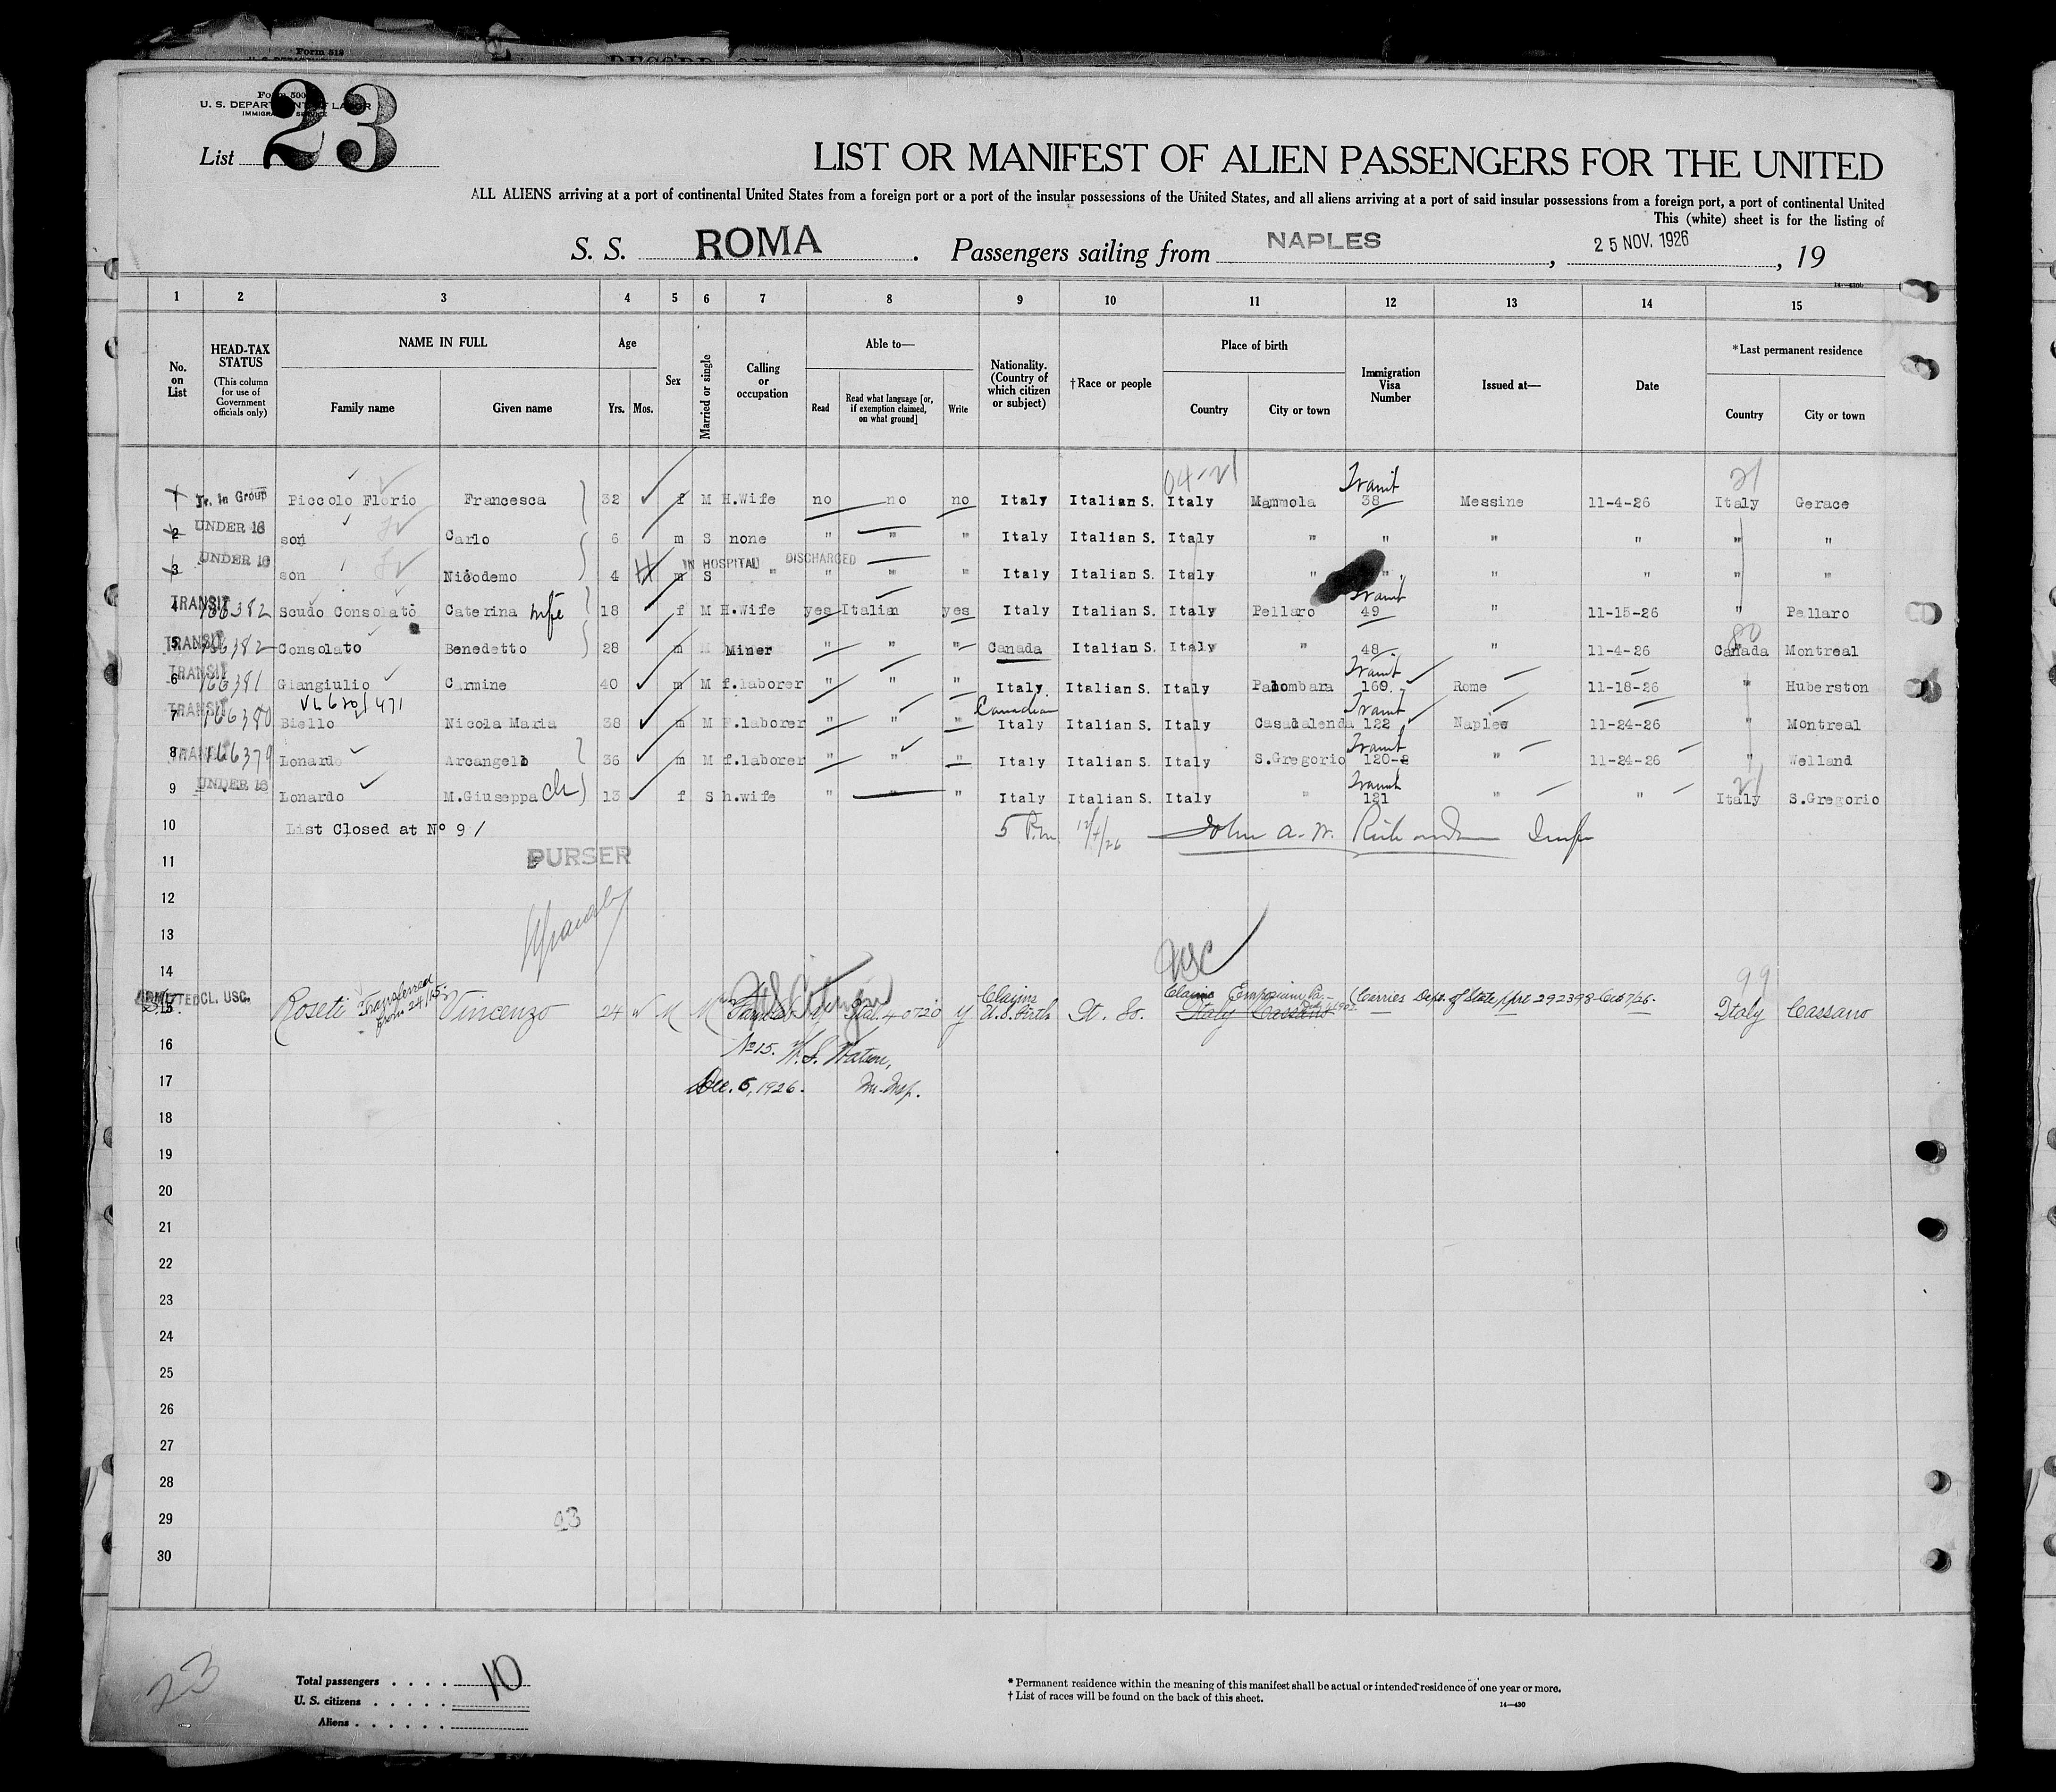 Form 519
Form 500
U. S. DEPARTMENT OF LABOR
IMMIGRATION SERVICE
List 23
LIST OR MANIFEST OF ALIEN PASSENGERS FOR THE UNITED
ALL ALIENS arriving at a port of continental United States from a foreign port or a port of the insular possessions of the United States, and all aliens arriving at a port of said insular possessions from a foreign port, a port of continental United
This (white) sheet is for the listing of
S. S. ROMA . Passengers sailing from NAPLES , 25 NOV. 1926 , 19
1 2 3 4 5 6 7 8 9 10 11 12 13 14 15
No. on List HEAD-TAX STATUS (This column for use of Government officials only) NAME IN FULL Family name Given name Age Yrs. Mos. Sex Married or single Calling or occupation Able to— Read Read what language [or, if exemption claimed, on what ground] Write Nationality. (Country of which citizen or subject) †Race or people Place of birth Country City or town Immigration Visa Number Issued at— Date *Last permanent residence Country City or town
04-21 Transit 21
1 Tr. in Group Piccolo Florio Francesca 32 f M H.Wife no no no Italy Italian S. Italy Mammola 38 Messine 11-4-26 Italy Gerace
2 UNDER 16 son Carlo 6 m S none " " " Italy Italian S. Italy " " " " " "
IN HOSPITAL DISCHARGED
3 UNDER 16 son Nicodemo 4 m S " " " " Italy Italian S. Italy " " " " " "
4 TRANSIT 166382 Scudo Consolato Caterina wife 18 f M H.Wife yes Italian yes Italy Italian S. Italy Pellaro Transit 49 " 11-15-26 " Pellaro
5 TRANSIT 166382 Consolato Benedetto 28 m M Miner " " " Canada Italian S. Italy " 48 " 11-4-26 Canada Montreal
6 TRANSIT 166381 Giangiulio Carmine 40 m M f.laborer " " " Italy Italian S. Italy Palombara Transit 169. Rome 11-18-26 " Huberston
7 TRANSIT 166380 Biello Nicola Maria 38 m M F.laborer " " " Canadian Italy Italian S. Italy Casacalenda Transit 122 Naples 11-24-26 " Montreal
8 TRANSIT 166379 Lonardo Arcangelo 36 m M f.laborer " " " Italy Italian S. Italy S.Gregorio Transit 120 " 11-24-26 " Welland
9 UNDER 16 Lonardo M.Giuseppa ch 13 f S h.wife " " " Italy Italian S. Italy " Transit 121 " " Italy S.Gregorio
10 List Closed at Nº 9 5 P.m. 12/4/26 John A. W. Richardson Insp
11 PURSER
12
13
14 USC 99
15 ADMITTED CL. USC. Roseti Transferred from 24/15 Vincenzo 24 M M US Citizen Ital. y Claims U.S. Birth It. So. Claims Emporium Pa. Italy Cassano (Carries Dept. of State ppt 292398 Italy Cassano
16 No 15. W. S. Watson,
17 Dec. 5, 1926. Im. Insp.
18
19
20
21
22
23
24
25
26
27
28
29
30
23
23
Total passengers . . . . 10
U. S. citizens . . . . .
Aliens . . . . . .
* Permanent residence within the meaning of this manifest shall be actual or intended residence of one year or more.
† List of races will be found on the back of this sheet.
14—430